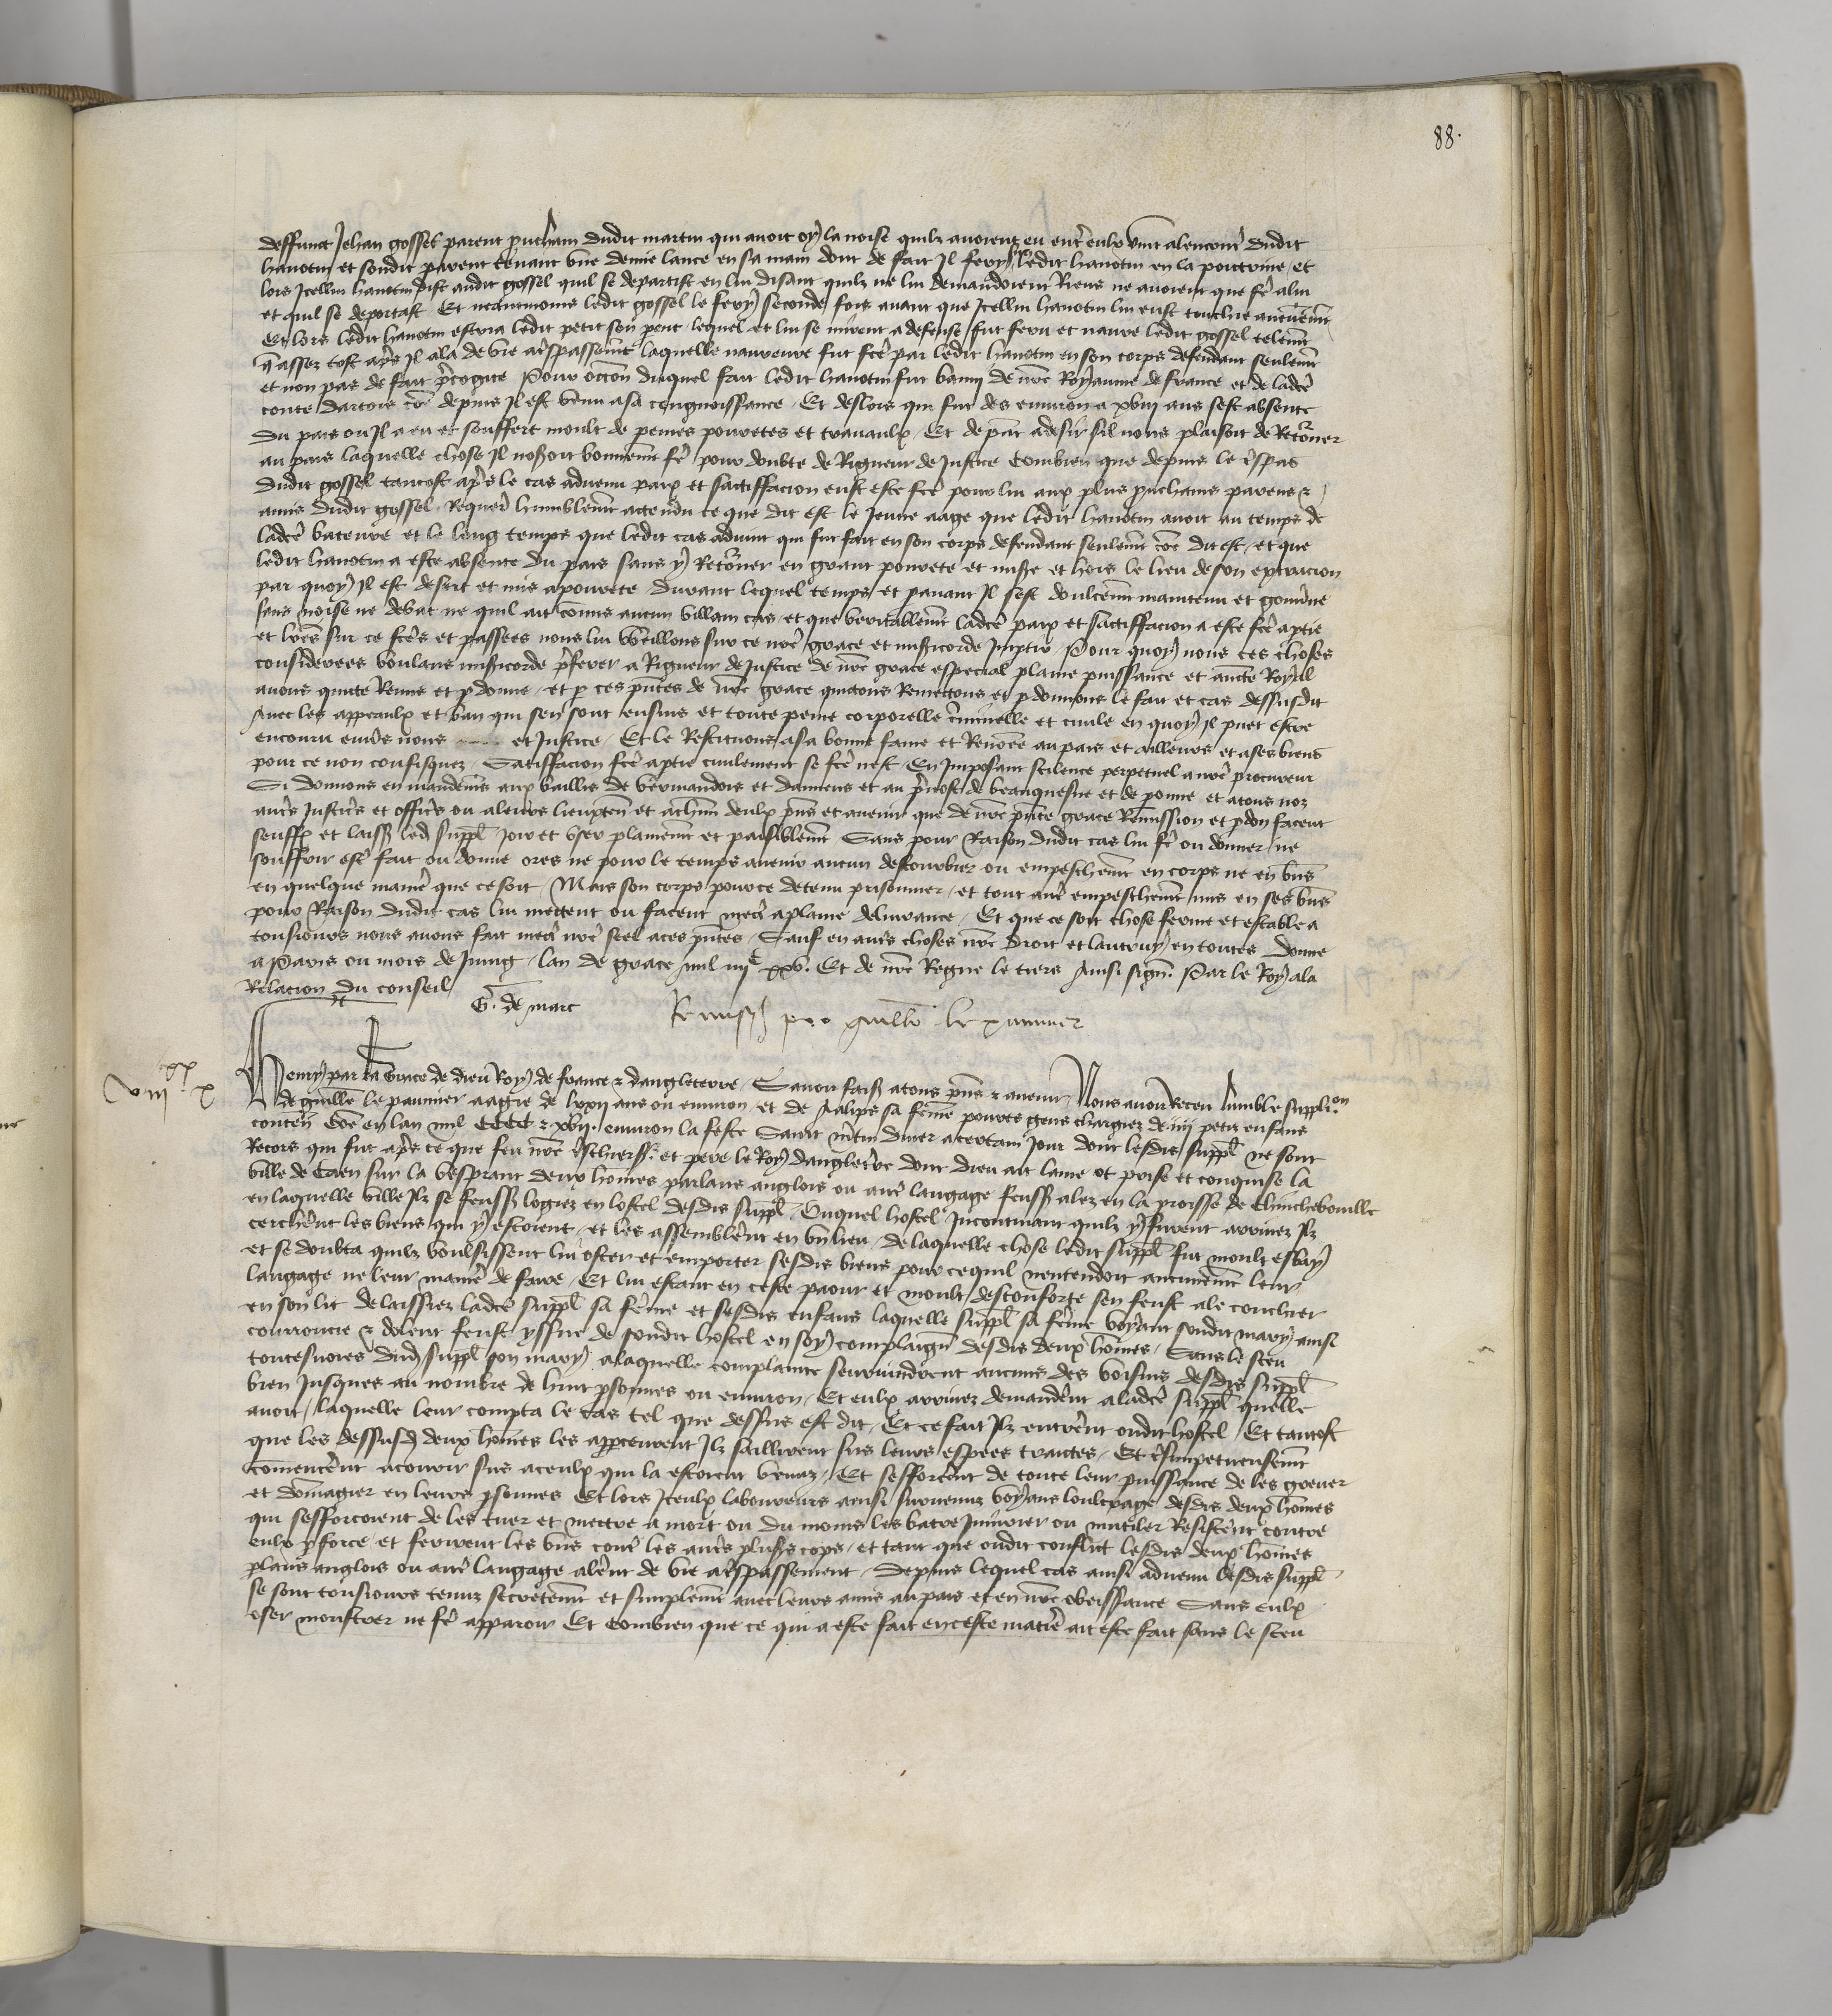 88.
deffunct Jehan gosset parent prucham dudit martin qui avoit oy la noise quilz avoient eu entre eulx vint alencontre dudit
hanotin et sondit parent tenant une demie lance en sa main dont de fait Il fery ledit hanotin en la poictrine et
lors Icellui hanotin dist audit gosset quil se departist en lui disant quilz ne lui demandoient Riens ne avoient que fe a lui
et quil se deportast Et neantmoins ledit gosset le fery seconde fois avant que Icellui hanotin lui eust touchie aucunemt
Et lors ledit hanotin escria ledit petit son pent lequel et lui se mirent a defense fut feru et navre ledit gosset telemt
q assez tost apres Il ala de vie a trespassemt laquelle navreure fut fce par ledit hanotin en son corps defendant seulemt
et non pas de fait precogite Pour occon duquel fait ledit hanotin fut bany de nre Royaume de france et de ladce
conte dartois coe depuis Il est venu a sa congnoissance Et deslors qui fut des environ a xviii ans sest absente
du pais ou Il a eu et souffert moult de peines povretes et travaulx Et de pnt a desir sil nous plaisoit de Retorner
au pais laquelle chose Il noseroit bonnemt fe pour doubte de Rigueur de Justice combien que depuis le trespas
dudit gosset tantost apres le cas advenu paix et sattiffacion eust este fce pour lui aux plus pruchains parens &
amis dudit gosset Requert humblemt attendu ce que dit est le Jeune aage que ledit hanotin avoit au temps de
ladce bateure et le long temps que ledit cas advint qui fut fait en son corps defendant seulemt coe dit est et que
ledit hanotin a este absente du pais sans y Retorner en grant povrete et mise et hors le lieu de son extracion
par quoy Il est desert et mis a povrete durant lequel temps et paravant Il sest doulcemt maintenu et gouvne
sans noise ne debat ne quil ait comis aucun villain cas et que veritablemt ladce paix et sattiffacion a este fce a ptie
et lres sur ce fces et passees nous lui vueillons sur ce nre grace et misericorde Imptir Pour quoy nous ces choses
considerees voulans misericorde preferer a Rigueur de Justice de nre grace especial plaine puissance et aucte Royal
avons quicte Remis et pdonne et p ces pntes de nre grace quictons Remettons et pdonnons le fait et cas dessusdit
Avec les appeaulx et ban qui sen sont ensuis et toute peine corporelle criminelle et civile en quoy Il puet estre
encouru envs nous et Justice Et le Restituons a sa bonne fame et Renomee au pais et ailleurs et a ses biens
pour ce non confisquez Satisfacion fce a ptie civilement se fce nest En Imposant scilence perpetuel a nre procureur
Si donnons en mandemt aux baillis de vermandois et damiens et au prevost de beauquesne et de peronne et a tous noz
autres Justiciers et officiers ou a leurs lieuxten et a chun deulx pns et avenir que de nre pnte grace Remission et pdon facent
seuffr et laiss led suppl Joir et user plainemt et paisiblemt Sans pour Raison dudit cas lui fe ou donner ne
souffrir estre fait ou donne ores ne pour le temps avenir aucun destourbier ou empeschemt en corps ne en bns
en quelque maniere que ce soit Mais son corps pour ce detenu prisonnier et tout autre empeschemt mis en ses bns
pour Raison dudit cas lui mettent ou facent mectre a plaine delivrance Et que ce soit chose ferme et estable a
tousiours nous avons fait mectre nre seel a ces pntes Sauf en autres choses nre droit et lautruy en toutes Donne
a Paris ou mois de Juing lan de grace mil iiiic xxv. Et de nre Regne le tiers Ainsi sign. Par le Roy a la
Relacion du conseil
G. de marc
Remissio pro guillo le paumier
viiixx x
Henry par la grace de dieu Roy de france & dangleterre Savoir faiss a tous pns & avenir Nous avoir Receu lumble supplion
de guille le paumier aagie de lxxii ans ou environ et de Aalips sa feme povres gens chargiez de iiii petiz enfans
conten Coe en lan mil CCCC & xvii. environ la feste Saint mtin diver a certain Jour dont lesdis suppl ne sont
Recors qui fut apres ce que feu nre treschierss. et pere le Roy dangleterre dont dieu ait lame ot prise et conquise la
ville de Caen sur la vesprant deux homes parlans anglois ou autre langage feussz alez en la proisse de Clinchebouille
en laquelle ville Ilz se feussz logiez en lostel desdis suppl Ouquel hostel Incontinant quilz y furent arrivez Ilz
cerchent les biens qui y estoient et les assemblent en un lieu de laquelle chose ledit suppl fut moult esbay
et se doubta quilz voulsissent lui oster et emporter sesdis biens pour ce quil nentendoit aucunemt leur
langage ne leur maniere de faire Et lui estant en ceste paour et moult desconforte sen feust ale couchier
en son lit delaissiez ladce suppl sa feme et sesdis enfans laquelle suppl sa feme voyant sondit mary ainsi
courroucie & dolent feust yssue de sondit hostel en soy complaign desdis deux homes Sans le sceu
toutesvoies dud suppl son mary a laquelle complainte seurvindrent aucuns des voisins desdis suppl
bien Jusques au nombre de huit psonnes ou environ Et eulx arrivez demandent a ladce suppl quelle
avoit laquelle leur compta le cas tel que dessus est dit Et ce fait Ilz entrent oudit hostel Et tantost
que les dessusd deux homes les apperceurent Ilz saillirent sus leurs espees traictes Et tresimpetueusemt
comencent a courir sus a ceulx qui la estoient venuz Et sefforcent de toute leur puissance de les grever
et domagier en leurs psonnes Et lors Iceulx laboureurs ainsi survenuz voyans loultrage desdis deux homes
qui sefforcoient de les tuer et mettre a mort ou du moins les batre Iniurier ou mutiler Resistent contre
eulx p force et ferirent les uns contre les autres plusrs cops et tant que oudit conflict lesdis deux homes
plans anglois ou autre langage alent de vie a trespassement Depuis lequel cas ainsi advenu lesdis suppl
se sont tousiours tenuz secretemt et simplemt avec leurs amis au pais et en nre obeissance Sans eulx
oser monstrer ne fe apparoir Et combien que ce qui a este fait en ceste matiere ait este fait sans le sceu